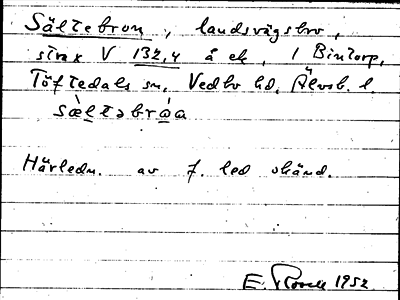 Sältebron, landsvägsbro,
strax V 132,4 å ek, 1 Bintorp,
Töftedals sn, Vedbo hd, Älvsb. l.
sæ̀ltəbrə̀a
Härledn. av f. led okänd.
E. 1952